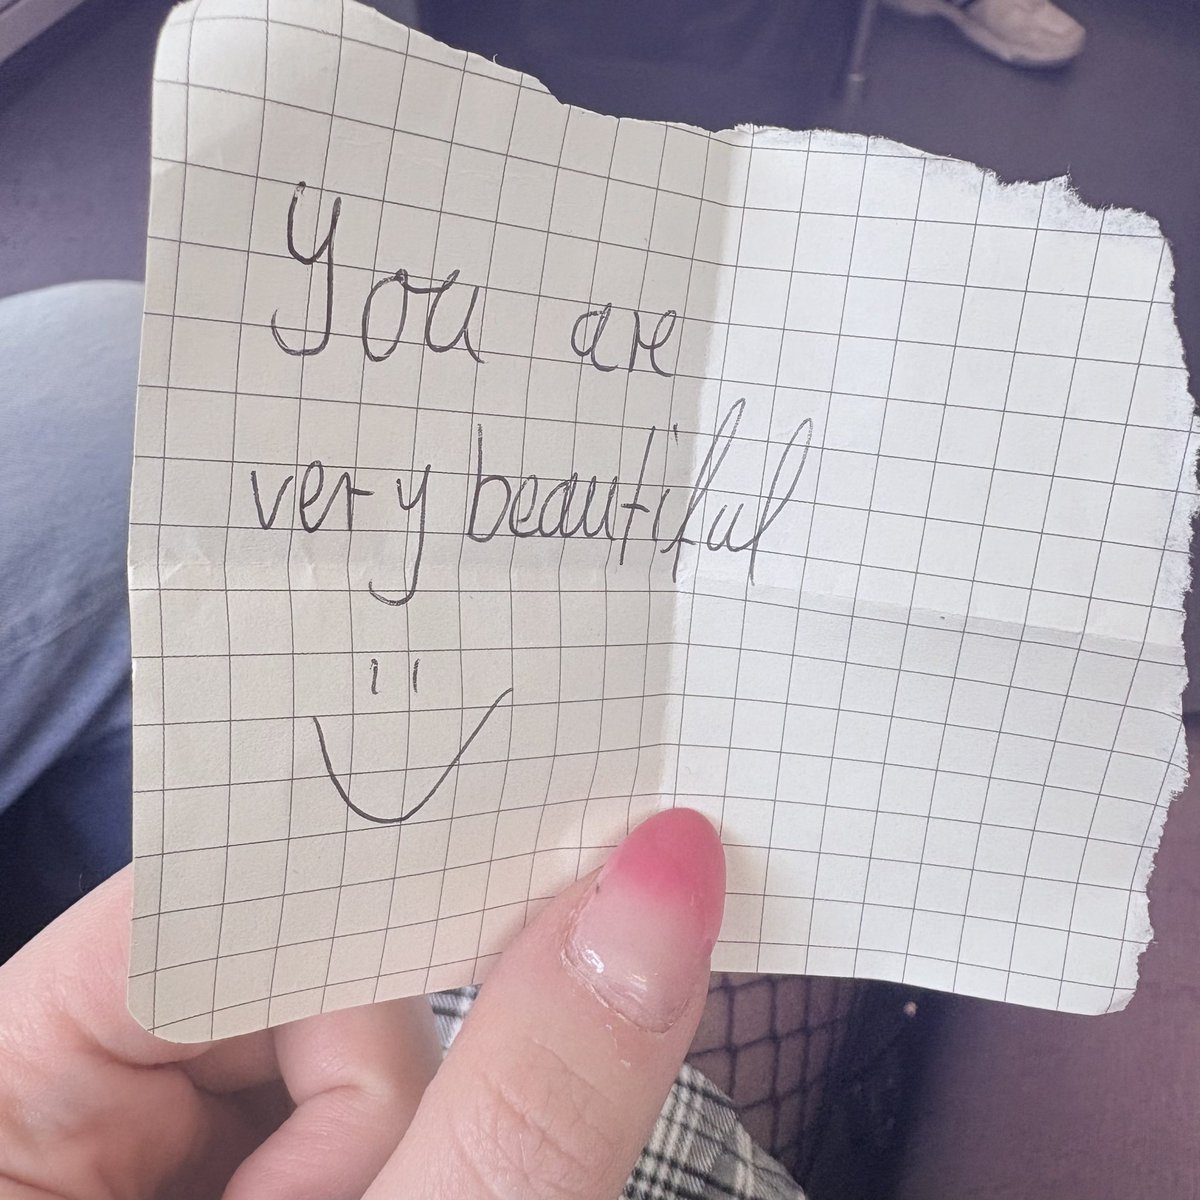 You are
very beautiful